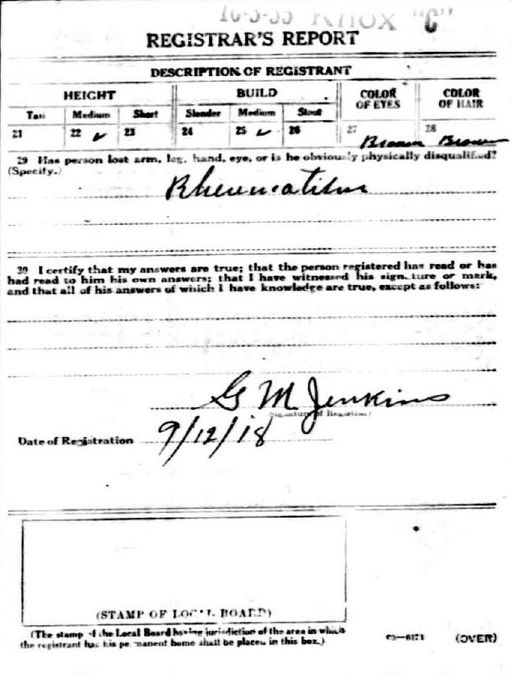 Knox "C"
REGISTRAR'S REPORT
DESCRIPTION OF REGISTRANT
HEIGHT BUILD COLOR OF EYES COLOR OF HAIR
Tall Medium Short Slender Medium Stout
21 22 ✓ 23 24 25 ✓ 26 27 Brown 28 Brown
29 Has person lost arm, leg, hand, eye, or is he obviously physically disqualified?
(Specify.)
Rheumatism
30 I certify that my answers are true; that the person registered has read or has
had read to him his own answers; that I have witnessed his signature or mark,
and that all of his answers of which I have knowledge are true, except as follows:
G M Jenkins
(Signature of Registrar)
Date of Registration 9/12/18
(STAMP OF LOCAL BOARD)
(The stamp of the Local Board having jurisdiction of the area in which
the registrant has his permanent home shall be placed in this box.)
03—6171 (OVER)